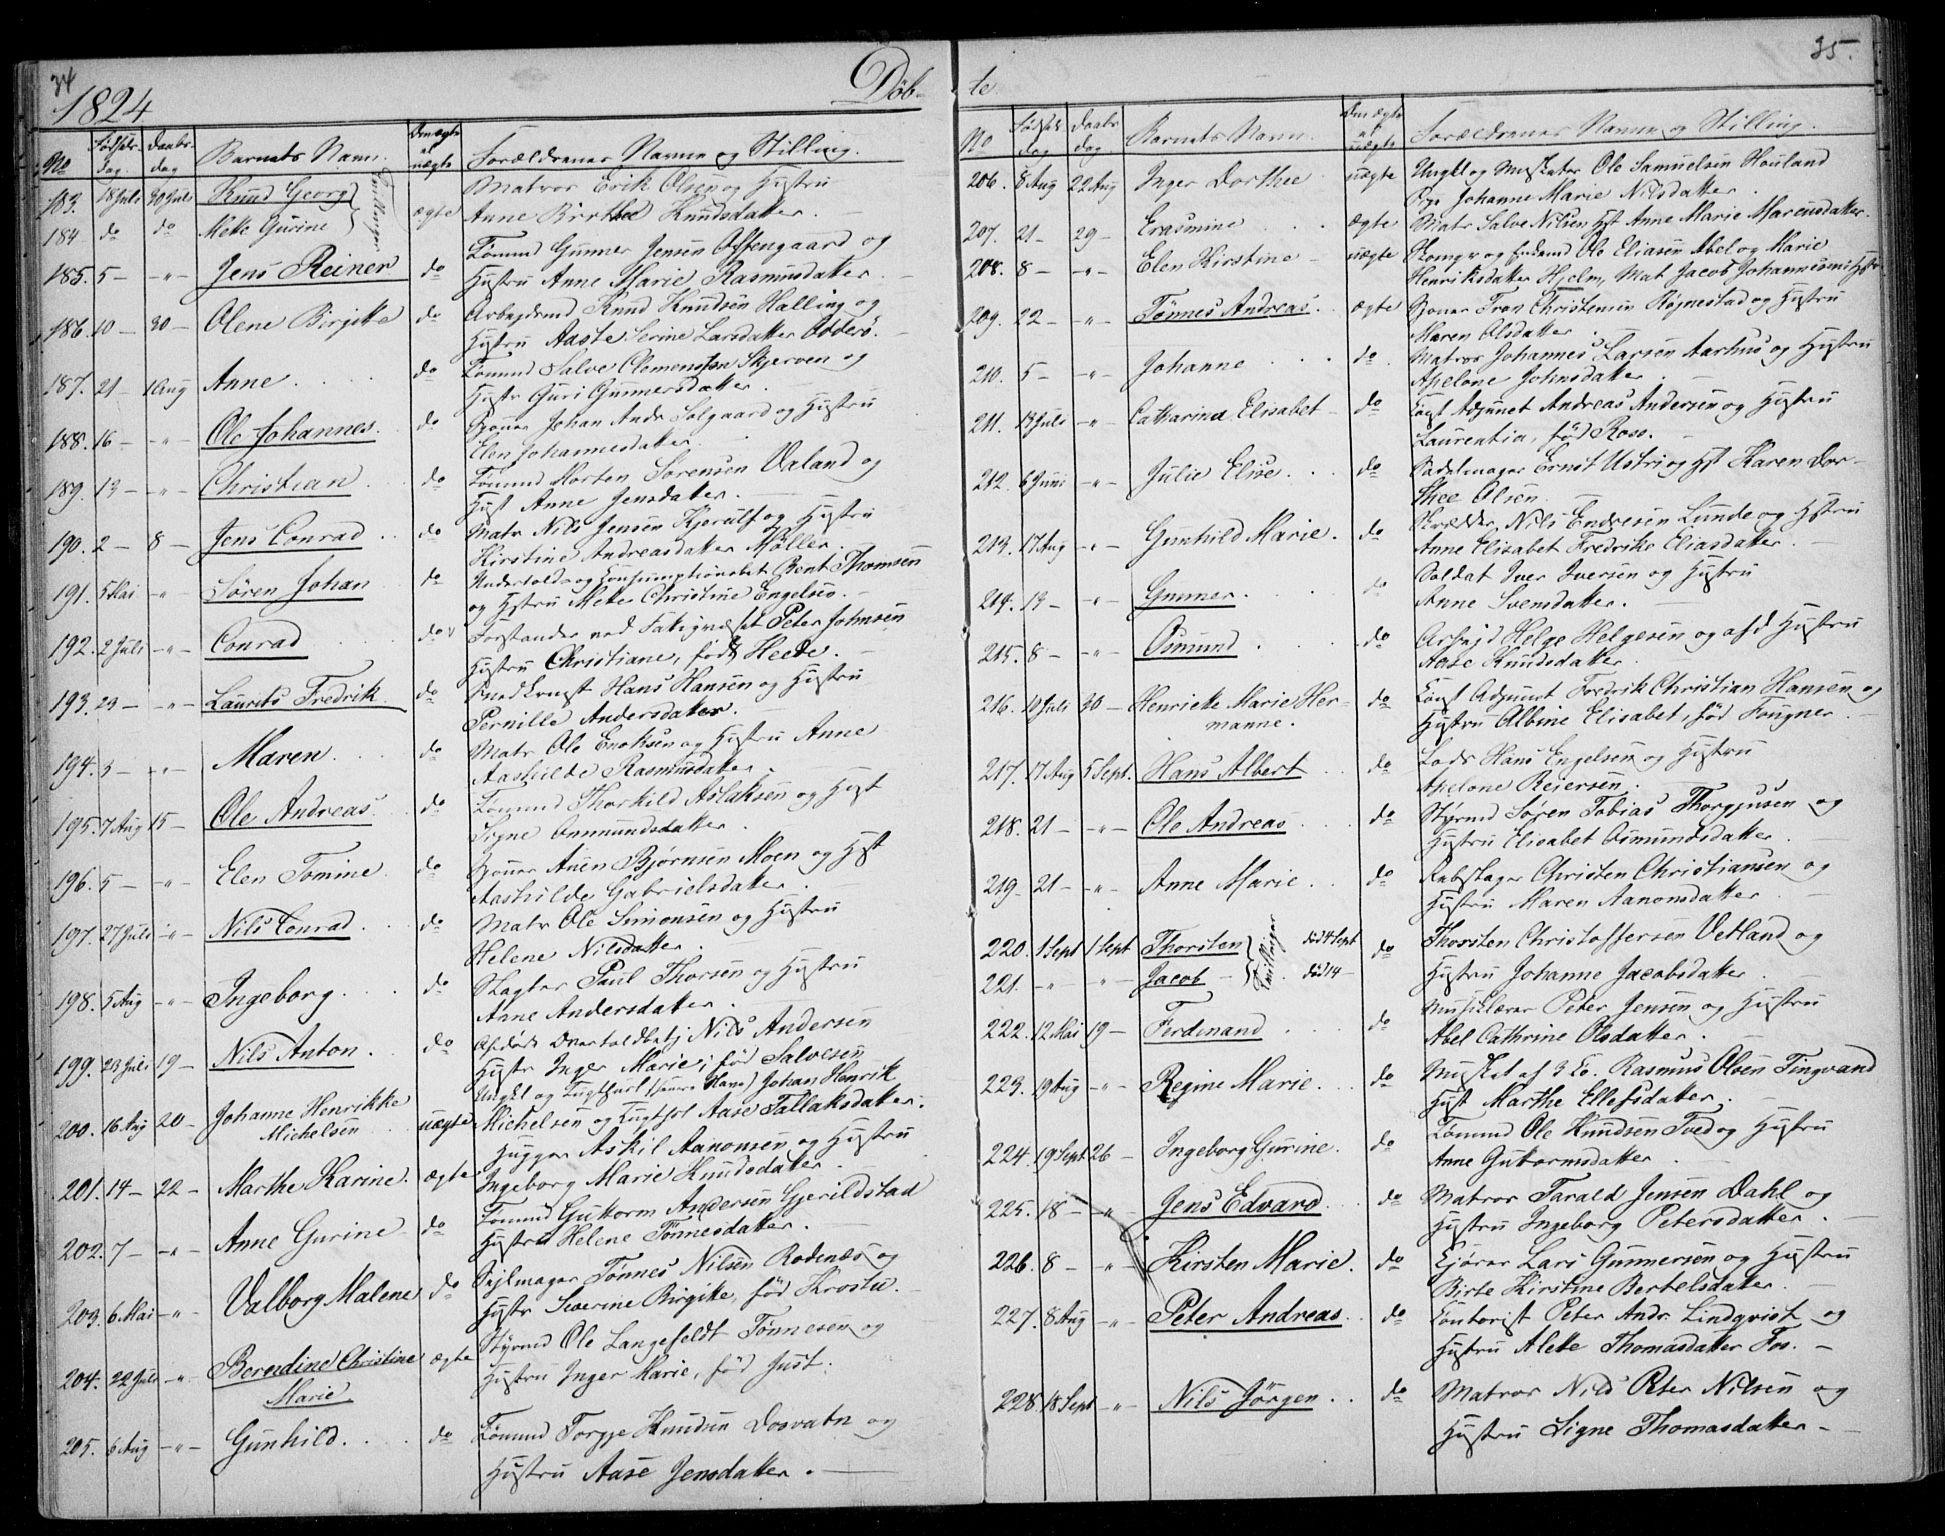 34
1824
Døb-
No Fødsels dag. Daabs dag Barnets Navn. Om ægte el uægte Forældrenes Navne og Stilling.
183. 18 Juli 30 Juli Knud Georg Matros Erik Olsen og Hustru
184 do do Mette Gurine Tvillinger ægte Anne Birthe Knudsdatter.
185. 5 - -"- Jens Reiner do Tømmd Gunner Jensen Østengaard og
Hustru Anne Marie Rasmusdatter.
186. 10 - 30 - Olene Birgitte do Arbejdsmd Knud Knudsen Halling og
Hustru Aaste Serine Larsdatter Odderø.
187. 21 - 1 Aug Anne do Tømmd Salve Clemensson Skjerven og
Hustr Guri Gunnersdatter.
188. 16 - -"- Ole Johannes. do Johan Andr Solgaard og Hustru
Elen Johannesdatter
189. 13 - -"- Christian do Tømmd Morten Sørensen Valand og
Hust Anne Jensdatter.
190. 2 - 8 - Jens Conrad do Matr Nils Jensen Kjerulf og Hustru
Kirstine Andreasdatter Møller.
191. 5 Mai -"- Søren Johan do Undertolds og Consumptionsbet Bent Thomsen
og Hstru Mette Christine Engelsen.
192. 2 Juli -"- Conrad do Forstander ved Fattigvæsnt Peter Johnsen
Hustru Christiane, født Heede.
193. 23 - -"- Laurits Fredrik do Hans Hansen og Hustru
Pernille Andersdatter.
194. 3 - -"- Maren do Matr Ole Enoksen og Hustru Anne
Aashilde Rasmusdatter.
195. 7 Aug 15 - Ole Andreas do Tømmd Thorkild Aslaksen og Hust
Signe Anmundsdatter.
196. 5 - -"- Elen Tomine do Anen Bjørnsen Moen og Hst
Aashilde Gabrielsdatter.
197. 27 Juli -"- Nils Conrad do Matr Ole Simonsen og Hustru
Helene Nilsdatter.
198. 5 Aug -"- Ingeborg do Slagter Paul Thorsen og Hustru
Anne Andersdatter.
199. 23 Juli 19 - Nils Anton. do Afdøde Overtoldbetj Nils Andersen
Hustr Inger Marie, født Salvesen
200. 16 Aug 20 - Johanne Henrikke Michelsen uægte Ungkl og Johan Henrik
Michelsen og Aase Tallaksdatter.
201. 14 - 22 - Marthe Karine. ægte Hugger Askil Aanonsen og Hustru
Ingeborg Marie Knudsdatter.
202. 7 - -"- Anne Gurine do Tømmd Guttorm Andersen Gjerildstad
Hustru Helene Tønnesdatter.
203. 6 Mai -"- Valborg Malene do Sejlmager Tønnes Nilsen Rodenæs og
Hustr Severine Birgitte, født
204. 22 Juli -"- Berendine Christine ægte Styrmd Ole Langefeldt Tønnesen og
Marie Hustru Inger Marie, født Just.
205. 6 Aug -"- Gunhild. do Tømmd Torgje Knudsen Dosvatn og
Hustru Aase Jensdatter.
35.
te
No Fødsels dag Daabs dag Barnets Navn. Om ægte el uægte Forældrenes Navne og Stilling.
206. 8 Aug 22 Aug Inger Dorthee uægte Ungkl og Musketer Ole Samuelsen Houland
Pige Johanne Marie Nilsdatter.
207. 21 - 29 - Erasmine ægte Matr Salve Nilsen Hst Anne Marie Marcusdatter.
208. 8 - -"- Elen Kirstine uægte Skomgr og Enkmd Ole Eliasen Abel og Marie
Henriksdatter Hjelm, Mat Jacob Johannesens Hstr
209. 22 - -"- Tønnes Andreas. ægte Christensen Røjnestad og Hustru
Maren Olsdatter.
210. 5 - -"- Johanne do Matros Johannes Larsen Aarhus og Hustru
Apelone Johnsdatter
211. 13 Juli -"- Catharina Elisabet do Adjunct Andreas Andersen og Hustru
Laurentia, født Rose.
212. 6 Juni -"- Julie Elise do Sadelmager Ernst Ustri og Hst Karen Dor-
thee Olsen.
213. 17 Aug -"- Gunhild Marie. do Skrædder Nils Endresen Lunde og Hstru
Anne Elisabet Fredrike Eliasdatter.
214. 13 - -"- Gunner. do Soldat Iver Iversen og Hustru
Anne Svensdatter.
215. 8 - -"- Osmund do Arbejd Helge Helgesen og afd Hustru
Aase Knudsdatter.
216. 10 Juli 30 - Henriette Marie Her- do Adjunct Fredrik Christian Hansen og
manne. Hustru Albine Elisabet, fød Fougner.
217. 17 Aug 5 Sept. Hans Albert do Lods Hans Engelsen og Hustru
Apelone Reiersen.
218. 21 - -"- Ole Andreas do Styrmd Søren Tobias Thorgjusen og
Hustru Elisabet Osmundsdatter
219. 21 - -"- Anne Marie do Rebslager Christen Christiansen og
Hustru Maren Aanonsdatter
220. 1 Sept 1 Sept Thorsten død 4 Sept do Thorsten Christoffersen Vetland og
221. -"- -"- Jacob Tvillinger død 14 - Hustru Johanne Jacobsdatter.
222. 12 Mai 19 - Ferdinand do Musiklærer Peter Jensen og Hustru
Abel Cathrine Olsdatter.
223. 19 Aug -"- Regine Marie. do Musket af 3 Co. Rasmus Olsen Tingvand
Hust Marthe Ellefsdatter.
224. 19 Sept 26 - Ingeborg Gurine. do Tømmd Ole Knudsen Tved og Hustru
Anne Guttormsdatter
225. 18 - -"- Jens Edvard. do Matros Tarald Jensen Dahl og
Hustru Ingeborg Petersdatter.
226. 8 - -"- Kirsten Marie. do Lars Gunnersen og Hustru
Birte Kirstine Bertelsdatter.
227. 8 Aug -"- Peter Andreas do Contorist Peter Andr. Lindqvist og
Hustru Alette Thomasdatter Fos.
228. 18 Sept -"- Nils Jörgen do Matros Nils Peter Nilsen og
Hustru Signe Thomasdatter -